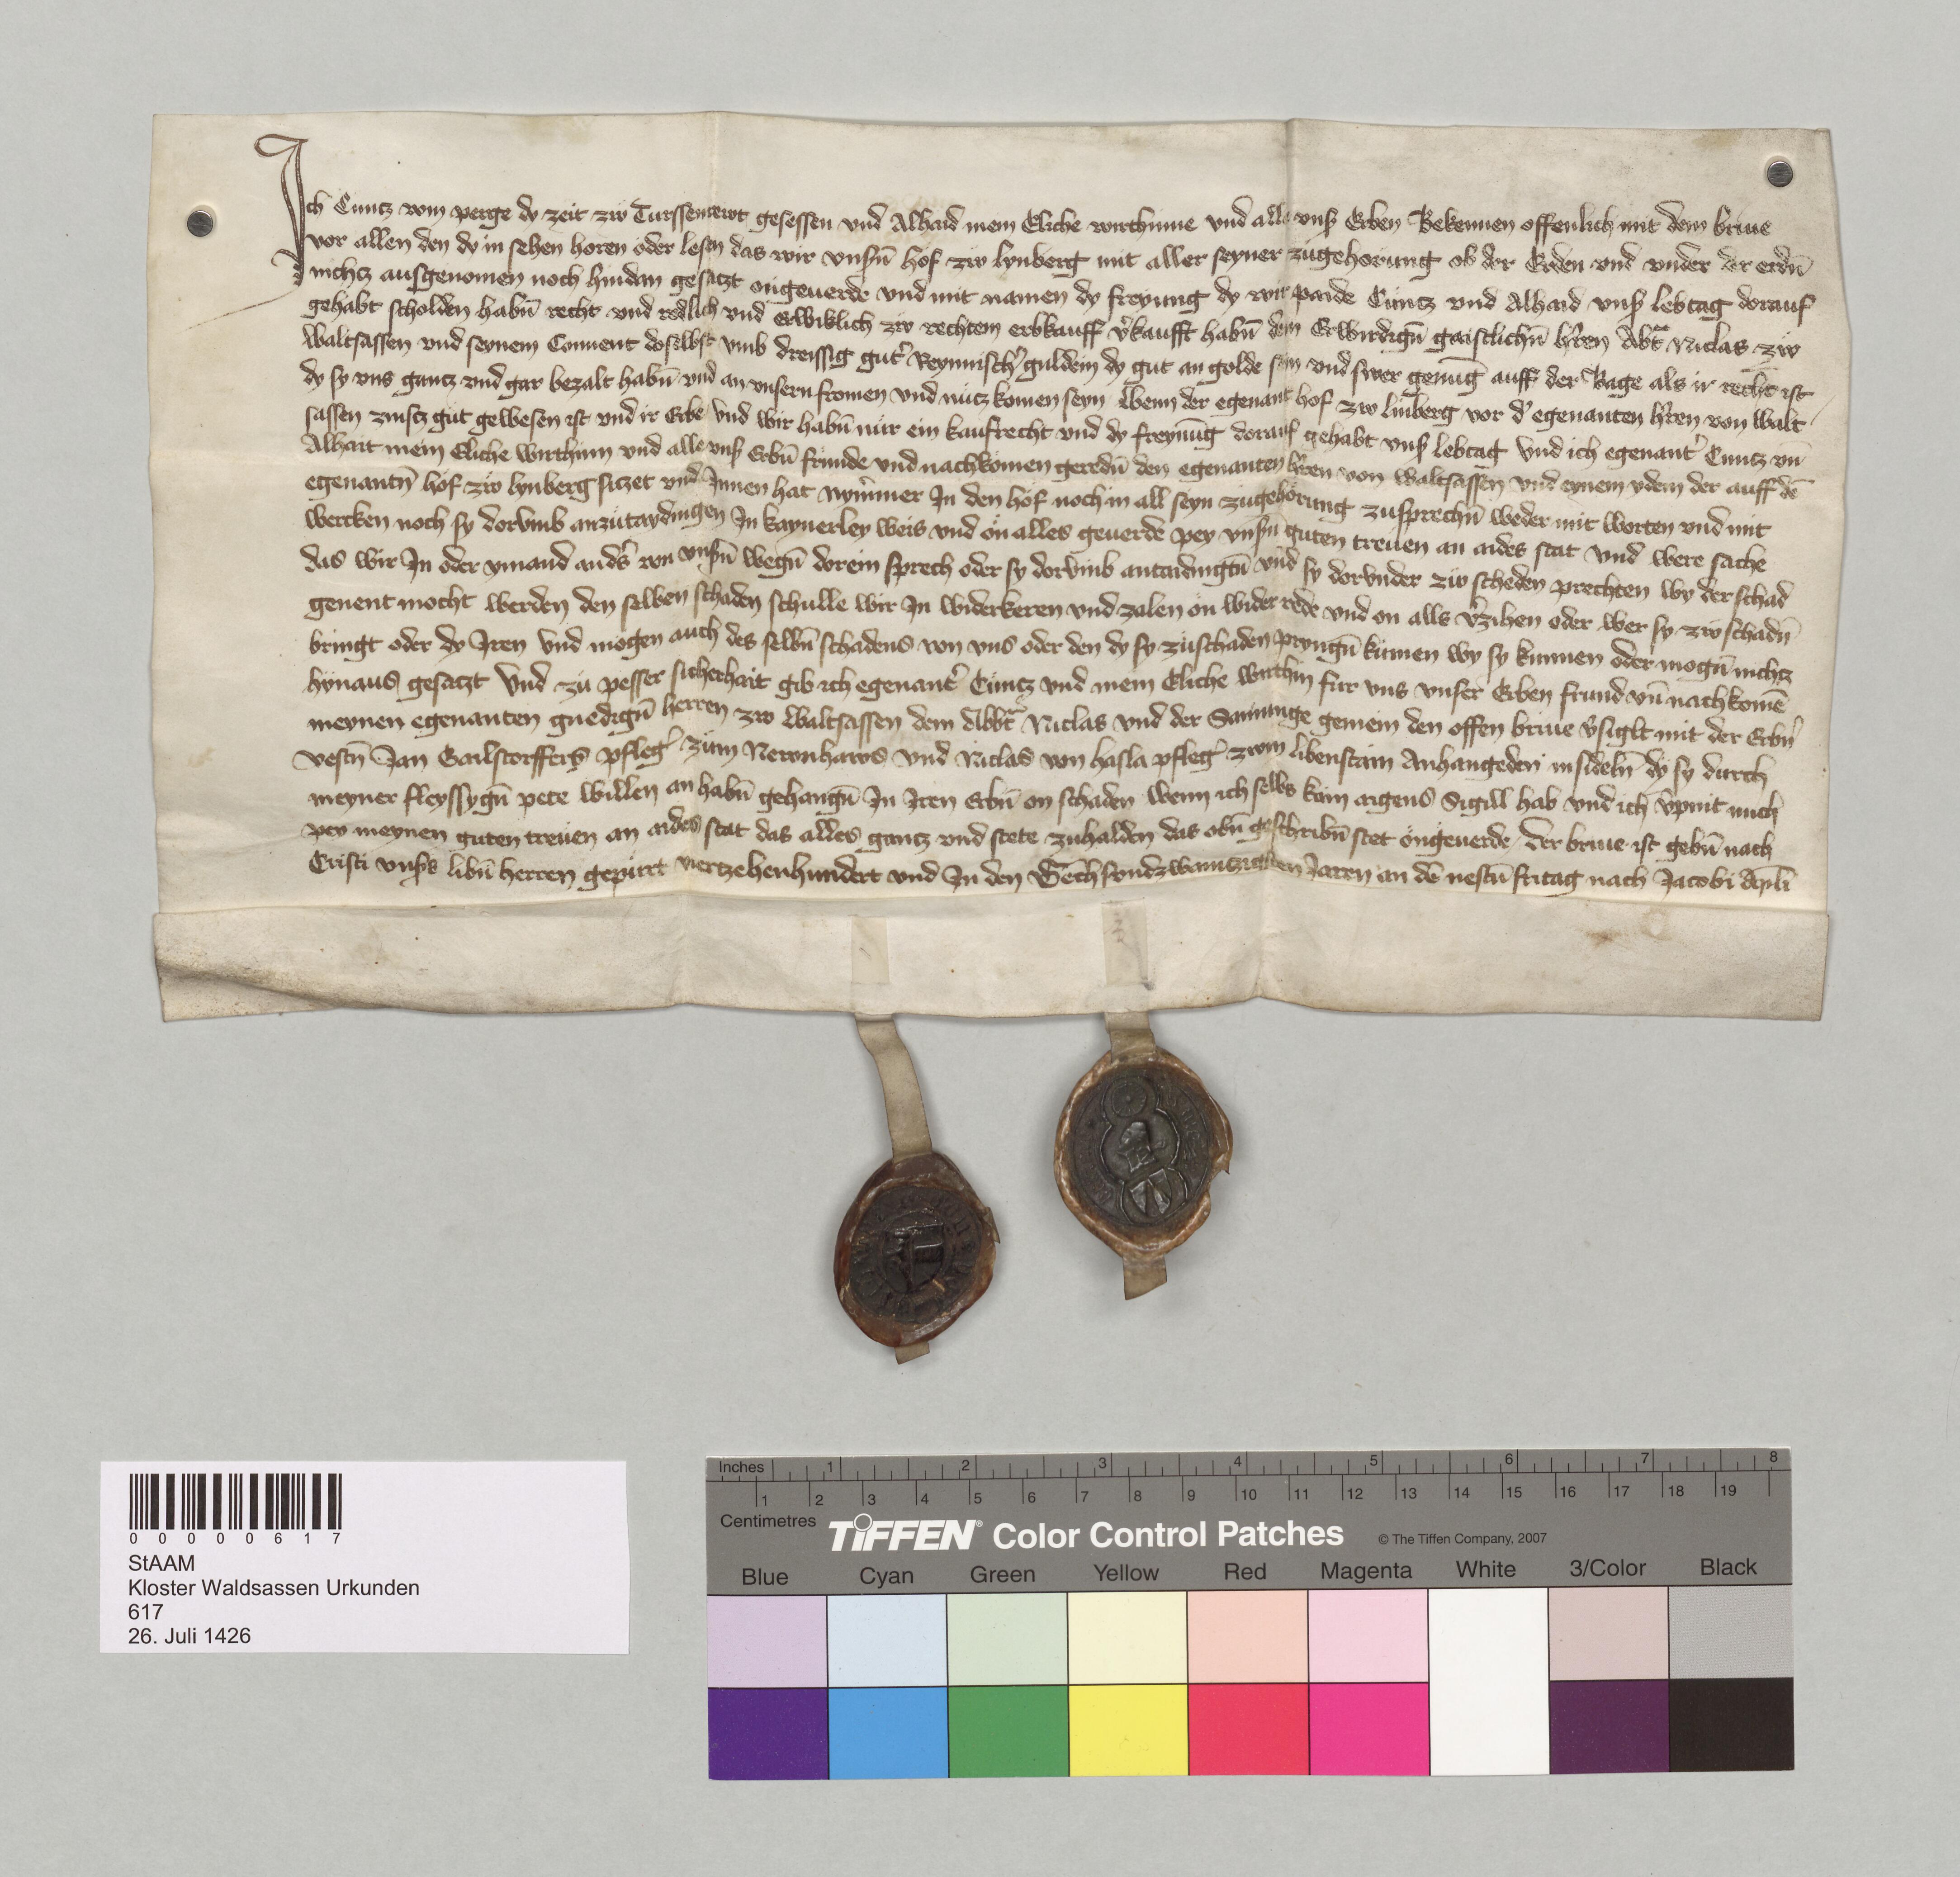 Ich Cuntz vom perge dy zeit zw Turssenrewt gesessen vnd Alhaid mein Eliche wirthinne vnd alle vnsʒ Erben Bekennen offenlich mit dem briue
vor allen den dy in sehen horen oder lesen das wir vnsn̄ hof zw lynberg mit aller seyner zugehorung ob der Erden vnd vnder der erdn̄
nichtz ausgenomen noch hindan gesatzt ongeuerde vnd mit namen dy freyung dy wir paide Cuntz vnd Alhaid vnsʒ lebtag dorauf
gehabt scholden habn̄ recht vnd redlich vnd Ewiklich zw rechtem erbkauff v̓kaufft habn̄ dem Erwirdign̄ gaistlichn̄ h̓ren Abt Niclas zw
Waltsassen vnd seynem Conuent doselbst vmb dreissig gut̓ Reynnisch̓ guldein dy gut an golde sein vnd swer genūg auff der Wage als ir recht ist
dy sy vns gantz vnd gar bezalt habn̄ vnd an vnsern fromen vnd nutz komen seyn Wenn der egenant hof zw linberg vor d̓ egenanten h̓ren von Walt
sassen zinstz gut gewesen ist vnd ir Erbe vnd wir habn̄ nur ein kaufrecht vnd dy freynūg dorauf gehabt vnsʒ lebtag Vnd ich egenant̓ Cuntz vn̄
Alhait mein Eliche Wirthinn vnd alle vnsʒ Erbn̄ frunde vnd nachkomen geredn̄ den egenanten h̓ren von Waltsassen vnd eynem ydem der auff dē
egenantn̄ hof zw lynberg sitzet vnd Jnnen hat nym̄mer Jn den hof noch in all seyn zugehorung zusprechn̄ weder mit Worten vnd mit
wercken noch sy dorvmb anzutaydingen Jn kaynerley weis vnd on alles geuerde pey vnsn̄ guten treuen an aides stat Vnd were sache
das wir Jn oder ymand and̓s von vnsn̄ wegn̄ dorein sprech oder sy dorvmb antaidingtn̄ vnd sy dorvnder zw scheden prechten Wy der schad
genent mocht werden den selben schaden schulle wir Jn widerkeren vnd zalen on widerrede vnd on alls v̓zihen oder wer sy zw schadn̄
bringt oder dy Jren Vnd mogen auch des selbn̄ schadens von vns oder den dy sy zuschaden pryngn̄ kumen wy sy kunnen oder mogn̄ nichtz
hynaus gesatzt Vnd zu pesser sicherhait gib ich egenant̓ Cuntz vnd mein Eliche Wirthin fur vns vnser Erben frund vn̄ nachkomē
meynen egenanten gnedign̄ herren zw Waltsassen dem Abbt Niclas vnd der Samnunge gemein den offen briue v̓siglt mit der Erbn̄
vestn̄ Jan Gailstorffers pfleg̓ zum Newnhaws vnd Niclas von hasla pfleg̓ zwm libenstain Anhangeden insideln̄ dy sy durch
meyner fleyssygn̄ pete Willen an habn̄ gehangn̄ Jn Jren Erbn̄ on schaden Wenn ich selbs kain aigens Sigill hab vnd ich v̓pint mich
pey meynen guten treuen an aides stat das alles gantz vnd stete zuhalden das obn̄ geschribn̄ stet ongeuerde / Der briue ist gebn̄ nach
Cristi vnsʒs libn̄ herren gepurt viertzehenhundert vnd Jn den Sechsvndzwaintzigisten Jaren an dē nestn̄ fritag nach Jacobi Apl̄i
00000617
StAAM
Kloster Waldsassen Urkunden
617
26. Juli 1426
Inches 1 2 3 4 5 6 7 8
1 2 3 4 5 6 7 8 9 10 11 12 13 14 15 16 17 18 19
Centimetres
TIFFEN® Color Control Patches © The Tiffen Company, 2007
Blue Cyan Green Yellow Red Magenta White 3/Color Black